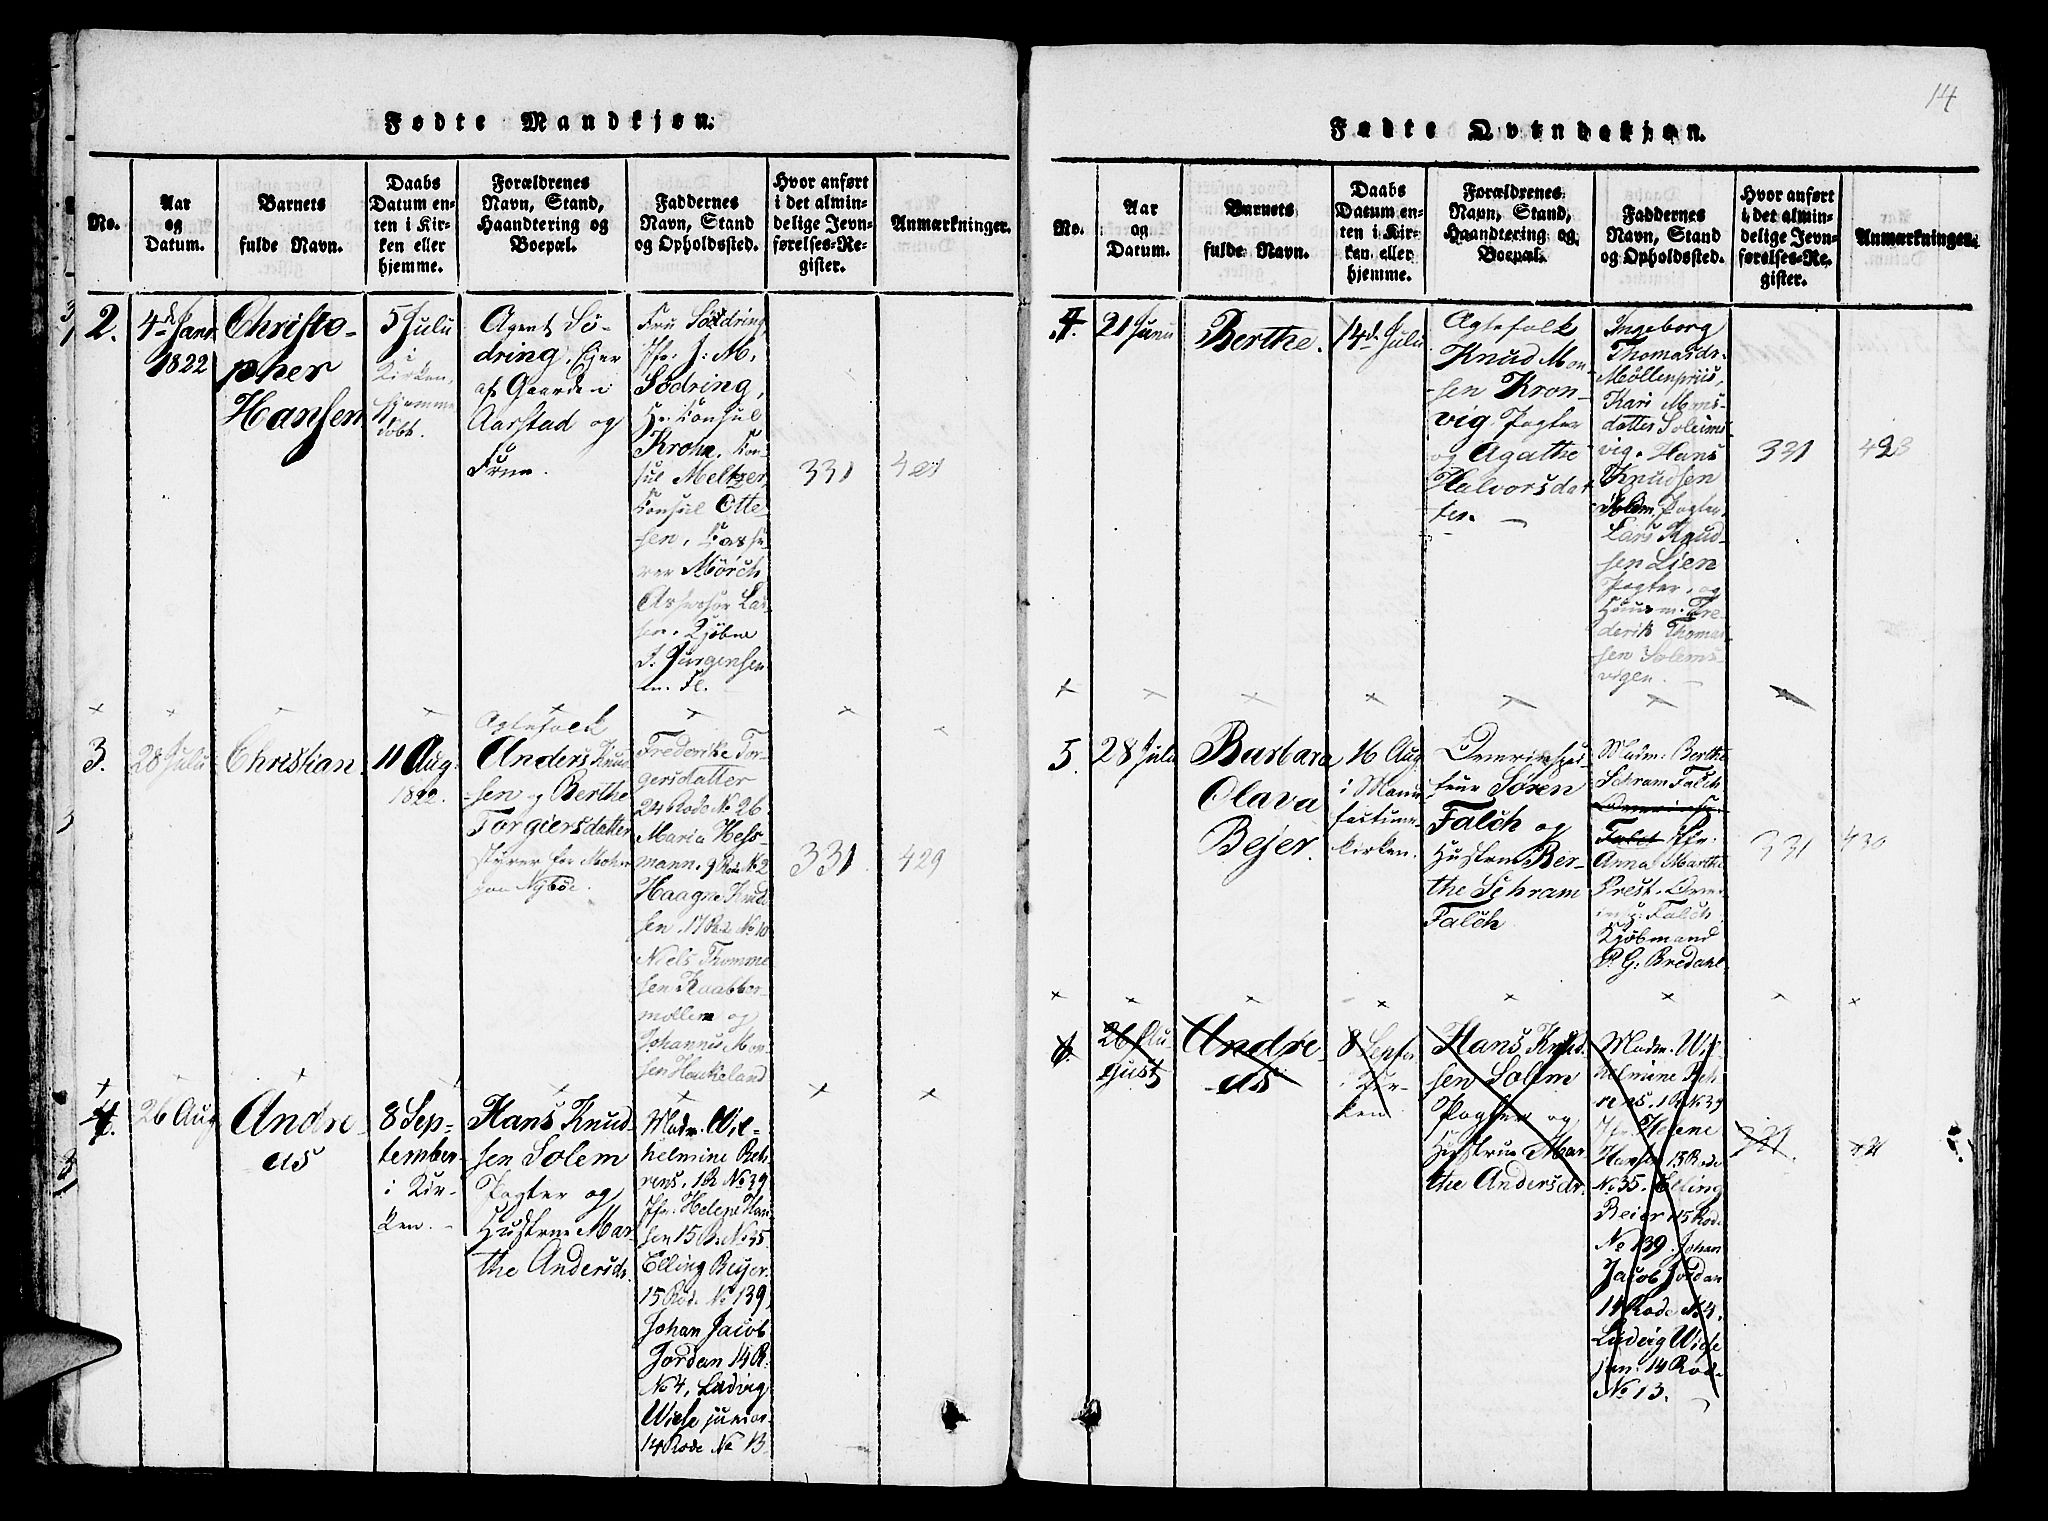 Fødte Mandkjøn.
No.
Aar
og
Datum.
Barnets
fulde Navn.
Daabs
Datum en-
ten i Kir-
ken eller
hjemme.
Forældrenes
Navn, Stand,
Haandtering og
Boepæl.
Faddernes
Navn, Stand
og Opholdssted.
Hvor anført
i det almin-
delige Jevn-
førelses-Re-
gister.
Anmærkninger.
2.
4de Janr
1822
Christo-
pher
Hansen
5 Julii
i
Kirken,
hjemme
döbt.
Agent Sö-
dring, Ejer
af Gaarde i
Aarstad og
Frue.
Fru Södring
Jfr. J. M.
Södring,
Hr. Consul
Krohn, Con-
sul Meltzer,
Consul Otte
sen, Casse-
rer Mörch
Assessor Lar-
sen, Kjöbm
J. Jürgensen
m. Fl.
331
421
3.
28 Julii
Christian
11 Aug.
1822.
Agtefolk
Anders Knud
sen og Berthe
Torgiersdatter
styrer for Møhn
paa Nybøe.
Frederike Tor-
gersdatter
24 Rode No 26
Maria Hess-
mann, 9 Rode No 2
Haagne Knud
sen, 17 Rode No 10
Niels Thomme
sen Knabbor-
möllen og
Johannes Mon-
sen Houkeland
331
429
4.
26 Aug
Andre-
as
8 Sep-
tember
i Kir-
ken.
Hans Knud-
sen Solem
Pagter og
Hustrue Mar-
the Andersdr.
Madm. Wil-
helmine Beh-
rens, 1 R No 39
Jfr. Helene Han
sen 15 R. No 35
Elling Beijer
15 Rode No 139,
Johan Jacob
Jordan 14 R.
No 4, Ludvig
Wiese junior
14 Rode No 13
14
Fødte Qvindekjøn.
No.
Aar
og
Datum.
Barnets
fulde Navn.
Daabs
Datum en-
ten i Kir-
ken eller
hjemme.
Forældrenes
Navn, Stand,
Haandtering og
Boepæl.
Faddernes
Navn, Stand
og Opholdssted.
Hvor anført
i det almin-
delige Jevn-
førelses-Re-
gister.
Anmærkninger.
4.
21 Junii
Berthe.
14d. Julii
Agtefolk
Knud Mon-
sen Kron-
vig Pagter
og Agathe
Halvorsdat
ter.
Ingeborg
Thomasdr.
Möllenpriis,
Kari Mons-
datter Solems
vig, Hans
Knudsen
Solem, Pagter,
Lars Knud-
sen Lien
Pagter, og
Huusm. Fre-
derik Thomas-
sen Solems-
vigen.
331
423
5.
28 Julii
Barbara
Olava
Bejer.
16 Aug
i Manu
factuur-
kirken.
Overinspec-
teur Sören
Falch og
Hustrue Ber-
the Schram
Falch
Madm. Berthe
Schram Falch
Overinsp.
Falch Jfr.
Anna Marthe
Prest. Over-
insp. Falch
Kjøbmand
P. G. Bredahl
331
430
6.
26 Au-
gust
Andre-
as
8 Septr.
i Kir-
ken
Hans Knud-
sen Solem
Pagter og
Hustrue Mar-
the Andersdr.
Madm. Wil-
helmine Beh-
rens, 1 R. No 39
Jfr. Helene
Hansen 15 Rode
No 35. Elling
Beier 15 Rode
No 139. Johan
Jacob Jordan
14 Rode No 4.
Ludvig Wiese
jun. 14 Rode
No 13.
331.